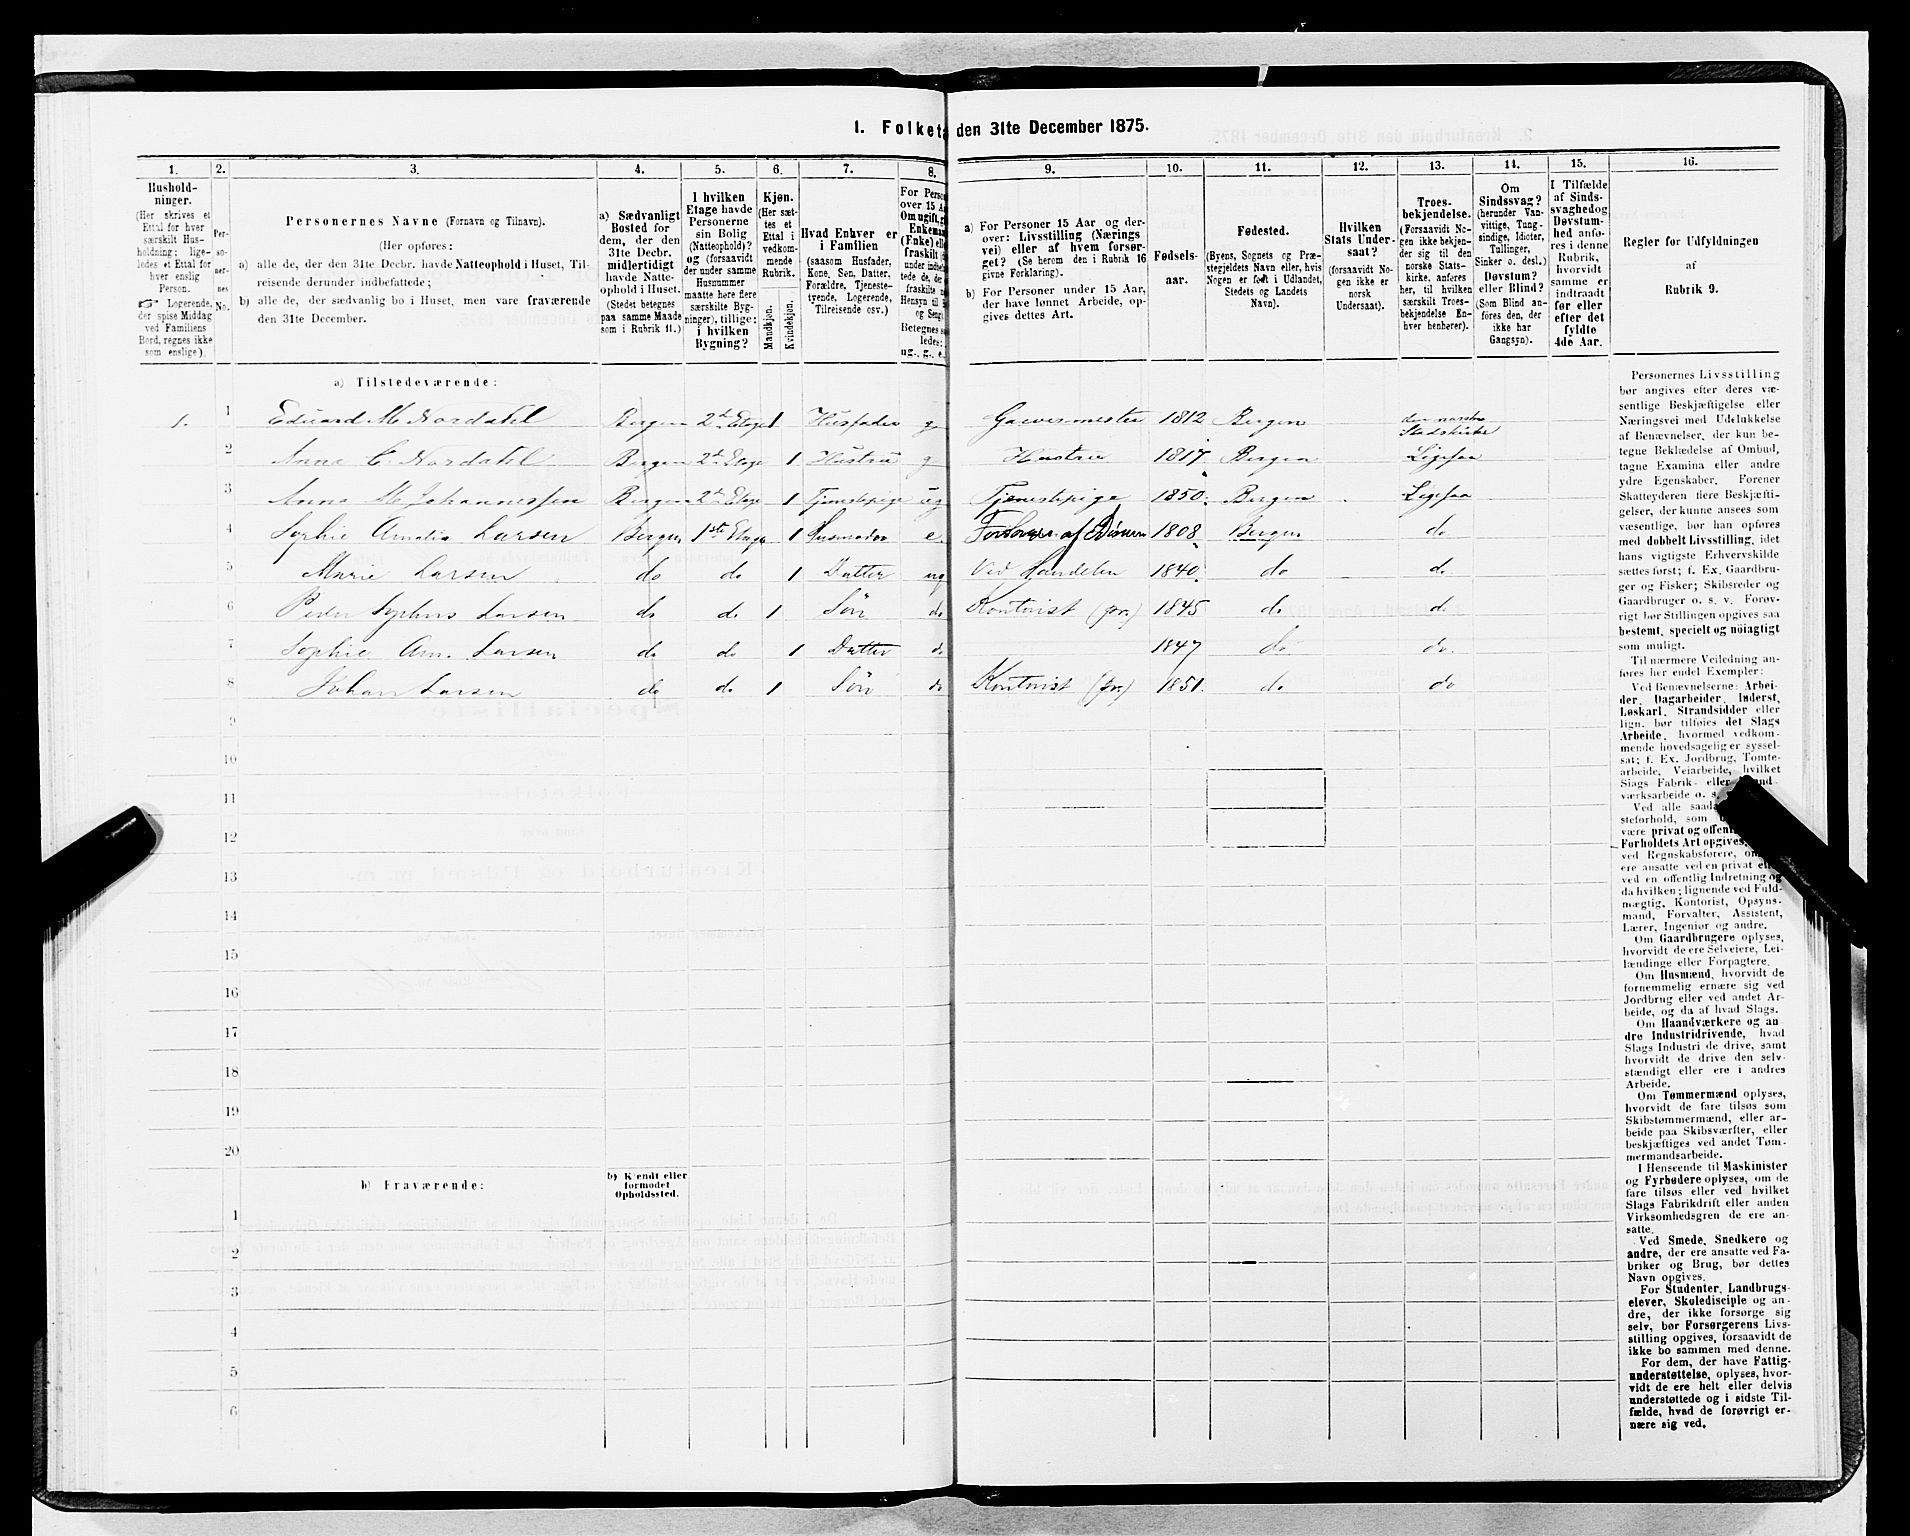 1. Folket den 31te December 1875.
1. 2. 3. 4. 5. 6. 7. 8. 9. 10. 11. 12. 13. 14. 15. 16.
Hushold-
ninger.
(Her skrives et
Ettal for hver
særskilt Hus-
holdning; lige-
ledes et Ettal for
hver enslig
Person.
Logerende,
der spise Middag
ved Familiens
Bord, regnes ikke
som enslige).
Per-
so-
ner-
nes
No.
Personernes Navne (Fornavn og Tilnavn).
(Her opføres:
a) alle de, der den 31te Decbr. havde Natteophold i Huset, Til-
reisende derunder indbefattede;
b) alle de, der sædvanlig bo i Huset, men vare fraværende
den 31te December.
a) Sædvanligt
Bosted for
dem, der den
31te Decbr.
midlertidigt
havde Natte-
ophold i Huset.
(Stedet betegnes
paa samme Maade
som i Rubrik 11.)
I hvilken
Etage havde
Personerne
sin Bolig
(Natteophold)?
og (forsaavidt
der under samme
Husnummer
maatte høre flere
særskilte Byg-
ninger), tillige:
i hvilken
Bygning?
Kjøn.
(Her sæt-
tes et
Ettal i
vedkom-
mende
Rubrik.
Mandkjøn.
Kvindekjøn.
Hvad Enhver er
i Familien
(saasom Husfader,
Kone, Søn, Datter,
Forældre, Tjeneste-
tyende, Logerende,
Tilreisende osv.)
For Perso
over 15 Aa
Om ugift, g
Enkema
(Enke) elle
fraskilt
under indbef
tede de, der
fraskilte
Hensyn til
og Seng)
Betegnes s
ledes:
ug., g., e.
a) For Personer 15 Aar og der-
over: Livsstilling (Nærings
vei) eller af hvem forsør-
get? (Se herom den i Rubrik 16
givne Forklaring).
b) For Personer under 15 Aar,
der have lønnet Arbeide, op-
gives dettes Art.
Fødsels-
aar.
Fødested.
(Byens, Sognets og Præ-
stegjeldets Navn eller, hvis
Nogen er født i Udlandet,
Stedets og Landets
Navn).
Hvilken
Stats Under-
saat?
(forsaavidt No-
gen ikke er
norsk
Undersaat).
Troes-
bekjendelse.
(Forsaavidt No-
gen ikke bekjen-
der sig til den
norske Stats-
kirke, anføres
her, til hvilken
særskilt Troes-
bekjendelse En-
hver henhører).
Om
Sindssvag?
(herunder Van-
vittige, Tung-
sindige, Idioter,
Tullinger,
Sinker o. desl.)
Døvstum?
eller Blind?
(Som Blind an-
føres den, der
ikke har
Gangsyn).
I Tilfælde
af Sinds-
svaghedog
Døvstum-
hed anfø-
res i denne
Rubrik,
hvorvidt
samme er
indtraadt
før eller
efter det
fyldte
4de Aar.
Regler for Udfyldningen
af
Rubrik 9.
a) Tilstedeværende:
1. 1 Eduard M. Nordahl Bergen 2d Etage 1 Husfader g 1812 Bergen den norske Statskirke
2 Anna C. Nordahl Bergen 2d Etage 1 Hustru g Hustru 1817 Bergen Ligesaa
3 Anna M. Johannessen Bergen 2d Etage 1 Tjenestepige ug Tjenestepige 1850. Bergen Ligesaa
4 Sophie Amalia Larsen Bergen 1ste Etage 1 Husmoder e. 1808 Bergen do
5 Marie Larsen do do 1 Datter ug Ved Handelen 1840 do do
6 Peder Sophus Larsen do do 1 Sön do Kontorist (pr.) 1845 do do
7 Sophie Am. Larsen do do 1 Datter do 1847 do do
8 Johan Larsen do do 1 Sön do Kontorist (pr.) 1851. do do
9
10
11
12
13
14
15
16
17
18
19
20
b) Fraværende:
b) Kjendt eller
formodet
Opholdssted.
1
2
3
4
5
6
Personernes Livsstilling
bør angives efter deres væ-
sentlige Beskjæftigelse eller
Næringsvei med Udelukkelse
af Benævnelser, der kun be-
tegne Beklædelse af Ombud,
tagne Examina eller andre
ydre Egenskaber. Forener
Skatteyderen flere Beskjæfti-
gelser, der kunne ansees som
væsentlige, bør han opføres
med dobbelt Livsstilling, idet
hans vigtigste Erhvervskilde
sættes først; f. Ex. Gaardbru-
ger og Fisker; Skibsreder og
Gaardbruger o. s. v. Forøv-
rigt bør Stillingen opgives saa
bestemt, specielt og nöiagtigt
som muligt.
Til nærmere Veiledning an-
føres her endel Exempler:
Ved Benævnelserne: Arbei-
der, Dagarbeider, Inderst,
Løskarl, Strandsidder eller
lign. bør tilføies det Slags
Arbeide, hvormed vedkom-
mende hovedsagelig er syssel-
sat; f. Ex. Jordbrug, Tomte-
arbeide, Veiarbeide, hvilket
Slags Fabrik- eller
værksarbeide o. s.
Ved alle saada
steforhold, som
være privat og offen
Forholdets Art opgives,
ved Regnskabsførere, om
ere ansatte ved en privat el
ved en offentlig Indretning og
da hvilken; lignende ved Fuld-
mægtig, Kontorist, Opsyns-
mand, Forvalter, Assistent,
Lærer, Ingeniør og andre.
Om Gaardbrugere oplyses,
hvorvidt de ere Selveiere, Lei-
lændinge eller Forpagtere.
Om Husmænd, hvorvidt de
fornemmelig ernære sig ved
Jordbrug eller ved andet Ar-
beide, og da af hvad Slags.
Om Haandværkere og an-
dre Industridrivende, hvad
Slags Industri de drive, samt
hvorvidt de drive den selv-
stændigt eller ere i andres
Arbeide.
Om Tømmermænd oplyses,
hvorvidt de fare tilsøs som
Skibstømmermænd, eller ar-
beide paa Skibsværfter, eller
beskjæftiges ved andet Tøm-
mermandsarbeide.
I Henseende til Maskinister
og Fyrbødere oplyses, om de
fare tilsøs eller ved hvilket
Slags Fabrikdrift eller anden
Virksomhedsgren de ere an-
satte.
Ved Smede, Snedkere og
andre, der ere ansatte ved Fa-
briker og Brug, bør dettes
Navn opgives.
For Studenter, Landbrugs-
elever, Skoledisciple og an-
dre, der ikke forsørge sig
selv, bør Forsørgerens Livs-
stilling opgives, forsaavidt de
ikke bo sammen med denne.
For dem, der have Fattig-
understøttelse, oplyses, hvor-
vidt de ere helt eller delvis
understøttede og i sidste Til-
fælde, hvad de forøvrigt er-
nære sig ved.